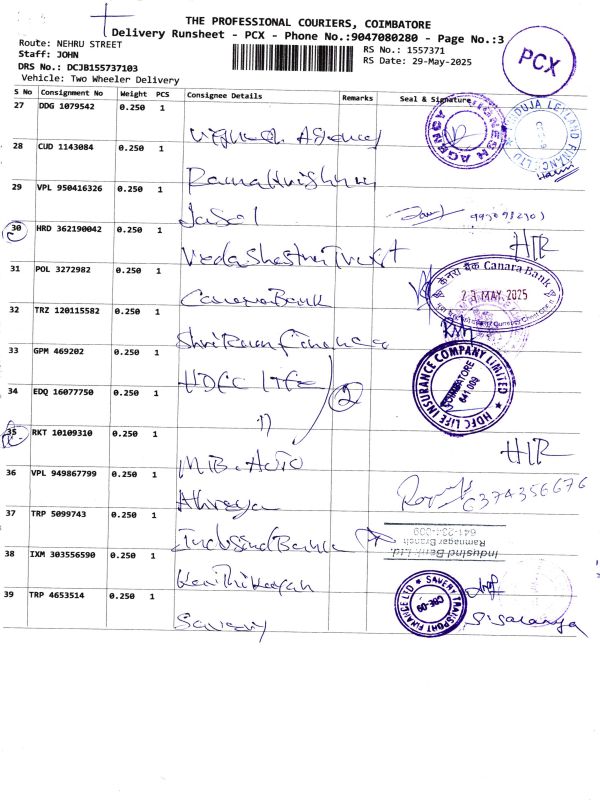 THE PROFESSIONAL COURIERS, COIMBATORE
Delivery Runsheet - PCX - Phone No.:9047080280 - Page No.:3
Route: NEHRU STREET
Staff: JOHN
DRS No.: DCJB155737103
Vehicle: Two Wheeler Delivery
RS No.: 1557371
RS Date: 29-May-2025
PCX
S No Consignment No Weight PCS Consignee Details Remarks Seal & Signature
27 DDG 1079542 0.250 1 Vignesh Agency
28 CUD 1143084 0.250 1 Ramakrishnan
29 VPL 950416326 0.250 1
30 HRD 362190042 0.250 1 Veda Shastra Trust
31 POL 3272982 0.250 1 Canara Bank
केनरा बैंक Canara Bank
MAY 2025
32 TRZ 120115582 0.250 1 Shri Ram Finance
33 GPM 469202 0.250 1 HDFC Life
2
HDFC LIFE INSURANCE COMPANY LIMITED
COIMBATORE
641 009
34 EDQ 16077750 0.250 1 "
35 RKT 10109310 0.250 1 M.B. Auto
36 VPL 949867799 0.250 1 Athreya 6374356676
37 TRP 5099743 0.250 1 IndusInd Bank
IndusInd Bank Ltd.
Ramnagar Branch
38 IXM 303556590 0.250 1 Karthikeyan
39 TRP 4653514 0.250 1 Savery
SAVERY TRANSPORT FINANCE LTD
CBE-09